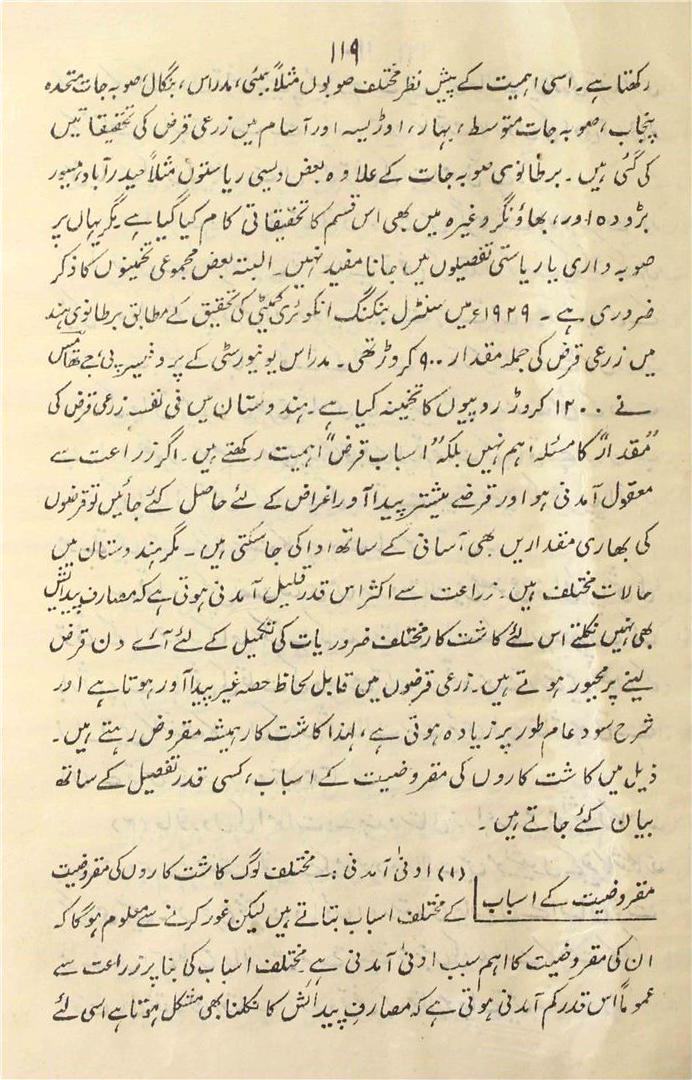 ۱۱۹
رکھتا ہے۔ اسی اہمیت کے پیش نظر مختلف صوبوں مثلاً بمبئی، مدراس، بنگال، صوبہ جات متحدہ
پنجاب، صوبہ جات متوسط، بہار، اوڑیسہ اور آسام میں زرعی قرض کی تحقیقاتیں
کی گئی ہیں۔ برطانوی صوبہ جات کے علاوہ بعض دیسی ریاستوں مثلاً حیدرآباد، میسور
بڑودہ اور، بھاؤنگر وغیرہ میں بھی اس قسم کا تحقیقاتی کام کیا گیا ہے مگر یہاں پر
صوبہ داری یا ریاستی تفصیلوں میں جانا مفید نہیں۔ البتہ بعض مجموعی تخمینوں کا ذکر
ضروری ہے۔ ۱۹۲۹ء میں سنٹرل بنکنگ انکوئری کمیٹی کی تحقیق کے مطابق برطانوی ہند
میں زرعی قرض کی جملہ مقدار ۹۰۰ کروڑ تھی۔ مدراس یونیورسٹی کے پروفیسر پی جے تھامس
نے ۱۲۰۰ کروڑ روپیوں کا تخمینہ کیا ہے۔ ہندوستان میں فی نفسہ زرعی قرض کی
”مقدار“ کا مسئلہ اہم نہیں بلکہ ”اسباب قرض“ اہمیت رکھتے ہیں۔ اگر زراعت سے
معقول آمدنی ہو اور قرضے بیشتر پیدا آور اغراض کے لئے حاصل کئے جائیں تو قرضوں
کی بھاری مقداریں بھی آسانی کے ساتھ ادا کی جاسکتی ہیں۔ مگر ہندوستان میں
حالات مختلف ہیں۔ زراعت سے اکثر اس قدر قلیل آمدنی ہوتی ہے کہ مصارف پیدائش
بھی نہیں نکلتے اس لئے کاشت کار مختلف ضروریات کی تکمیل کے لئے آئے دن قرض
لینے پر مجبور ہوتے ہیں۔ زرعی قرضوں میں قابل لحاظ حصہ غیر پیدا آور ہوتا ہے اور
شرح سود عام طور پر زیادہ ہوتی ہے، لہذا کاشت کار ہمیشہ مقروض رہتے ہیں۔
ذیل میں کاشت کاروں کی مقروضیت کے اسباب، کسی قدر تفصیل کے ساتھ
بیان کئے جاتے ہیں۔
مقروضیت کے اسباب
(۱) ادنیٰ آمدنی :۔ مختلف لوگ کاشت کاروں کی مقروضیت
کے مختلف اسباب بتاتے ہیں لیکن غور کرنے سے معلوم ہوگا کہ
ان کی مقروضیت کا اہم سبب ادنیٰ آمدنی ہے۔ مختلف اسباب کی بنا پر زراعت سے
عموماً اس قدر کم آمدنی ہوتی ہے کہ مصارف پیدائش کا نکلنا بھی مشکل ہوتا ہے اسی لئے